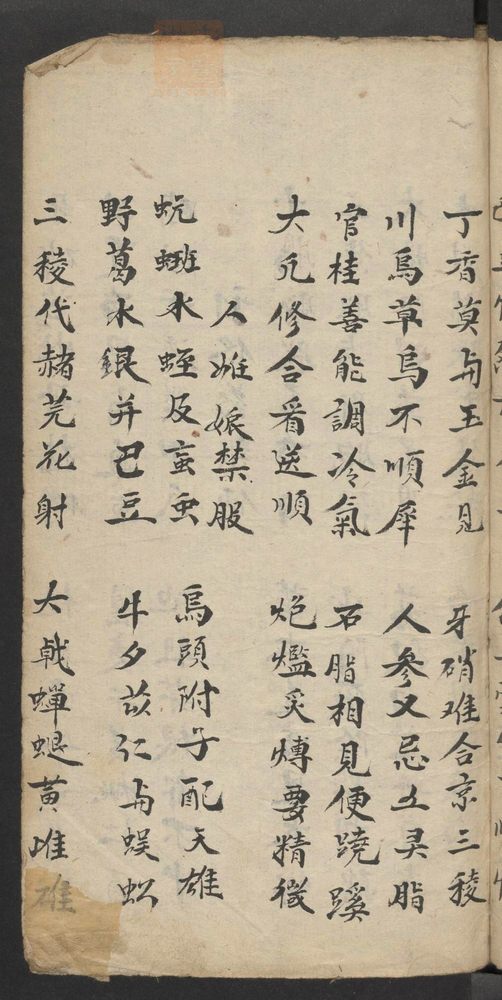 丁香莫与玉金見 牙硝难合京三稜
川烏草烏不順犀 人参又忌五灵脂
官桂善能調冷氣 石脂相見便蹺蹊
大凡修合看送順 炮爁炙煿要精微
人姙娠禁服
蚖蝬水蛭及䖟虫 烏頭附子配天雄
野葛水銀并巴豆 牛夕苡仁与蜈蚣
三稜代赭芫花射 大戟蟬蜕黄唯雄